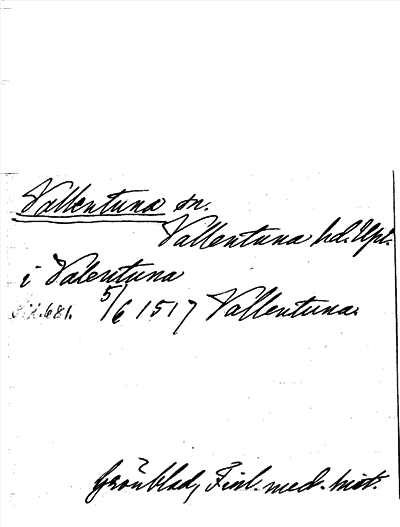 Vallentuna sn.
Vallentuna hd. Upl.
i Valentuna
s. 681. 5/6 1517 Vallentuna.
Grönblad, Finl. med. hist.